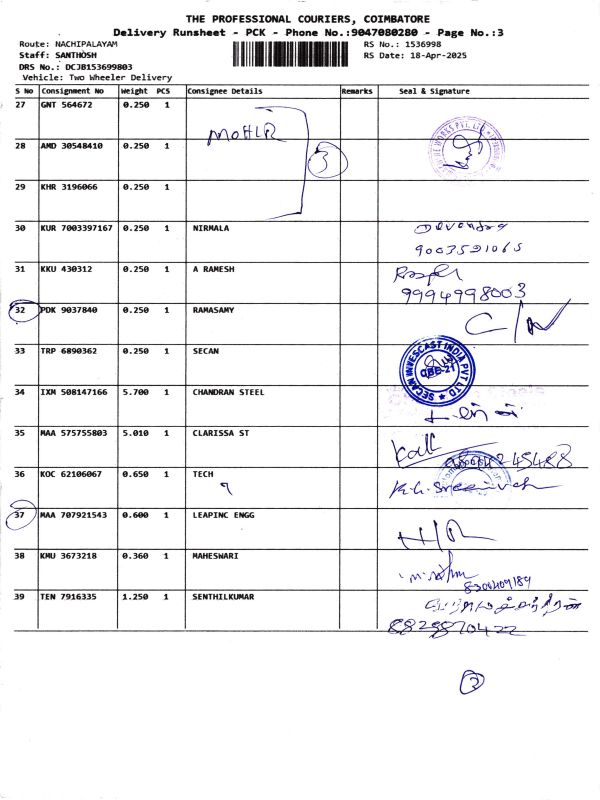 THE PROFESSIONAL COURIERS, COIMBATORE
Delivery Runsheet - PCK - Phone No.:9047080280 - Page No.:3
Route: NACHIPALAYAM
RS No.: 1536998
Staff: SANTHOSH
RS Date: 18-Apr-2025
DRS No.: DCJB153699803
Vehicle: Two Wheeler Delivery
S No Consignment No Weight PCS Consignee Details Remarks Seal & Signature
27 GNT 564672 0.250 1
MOHLR
28 AMD 30548410 0.250 1
3
29 KHR 3196066 0.250 1
30 KUR 7003397167 0.250 1 NIRMALA
9003591065
31 KKU 430312 0.250 1 A RAMESH
9994998003
32 PDK 9037840 0.250 1 RAMASAMY
C/N
33 TRP 6890362 0.250 1 SECAN
SECAN INVESCAST INDIA PVT LTD
CBE-21
34 IXM 508147166 5.700 1 CHANDRAN STEEL
35 MAA 575755803 5.010 1 CLARISSA ST
36 KOC 62106067 0.650 1 TECH
37 MAA 707921543 0.600 1 LEAPINC ENGG
38 KMU 3673218 0.360 1 MAHESWARI
39 TEN 7916335 1.250 1 SENTHILKUMAR
8829870422